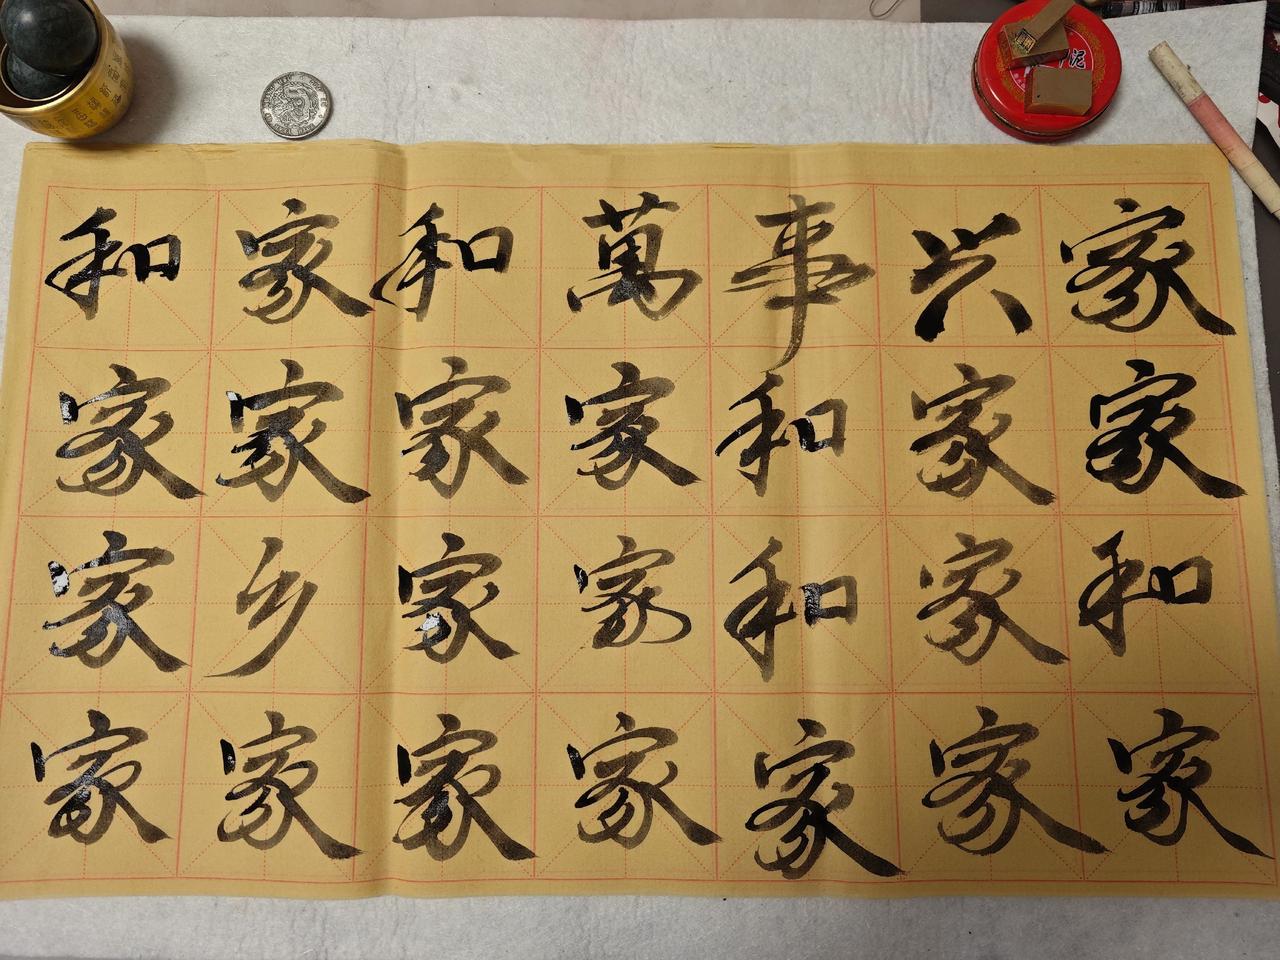 和家和萬事兴家
家家家家和家家
家乡家家和家和
家家家家家家家
泥